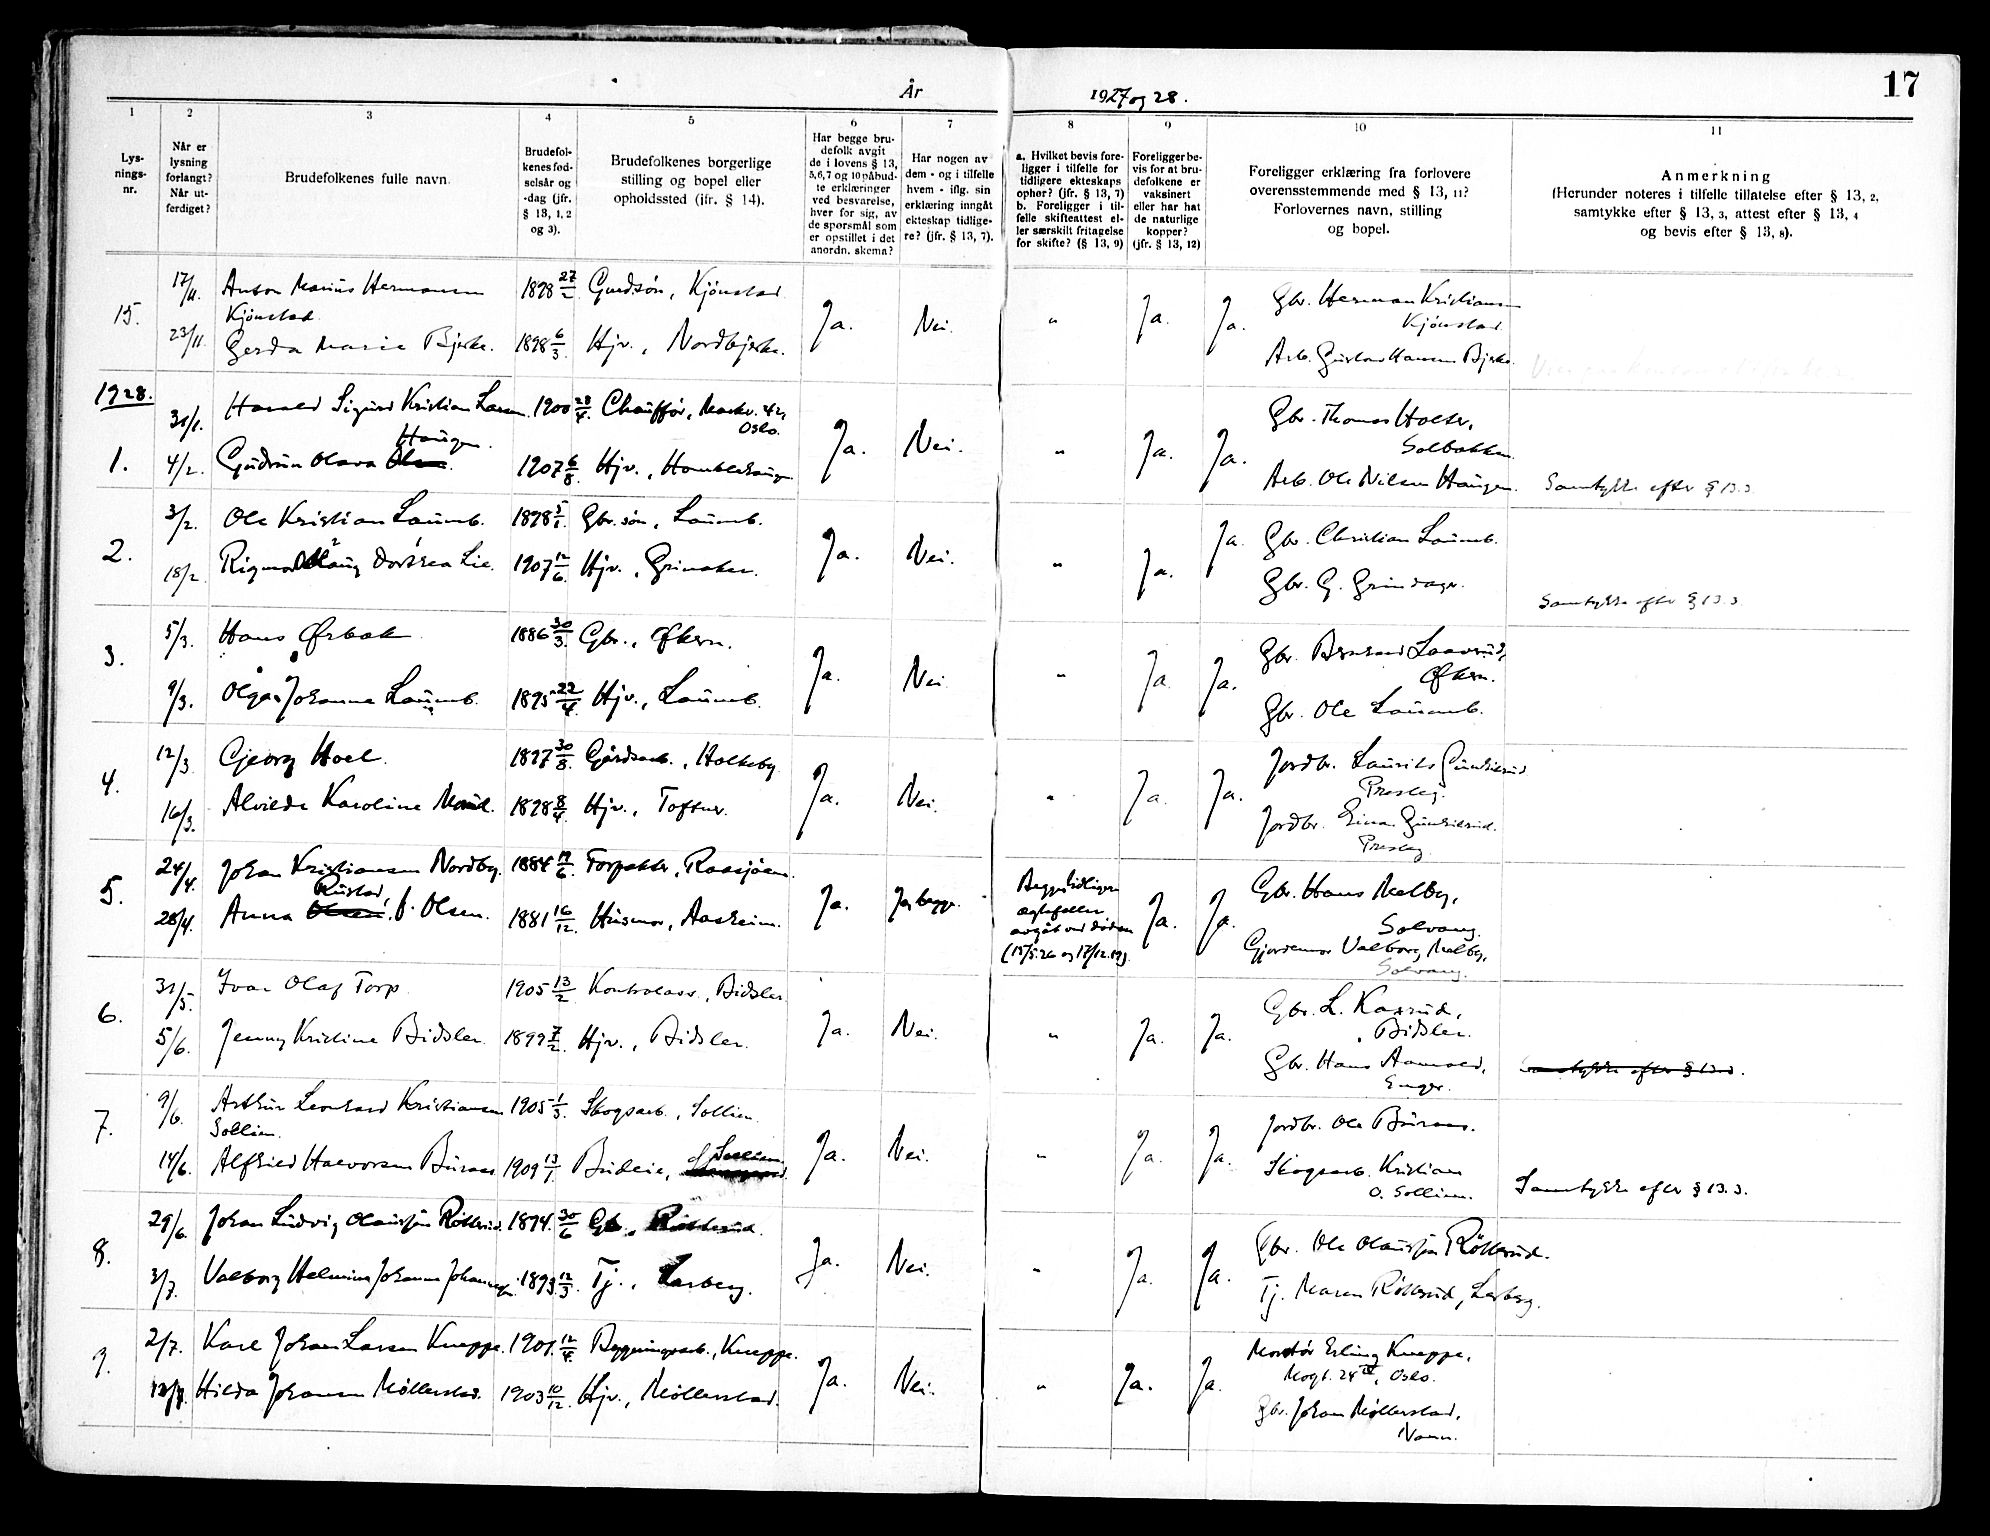 17
År
1927 og 28.
1
2
3
4
5
6
7
8
9
10
11
Lys-
nings-
nr.
Når er
lysning
forlangt?
Når ut-
ferdiget?
Brudefolkenes fulle navn.
Brudefol-
kenes fød-
selsår og
-dag (jfr.
§ 13, 1, 2
og 3).
Brudefolkenes borgerlige
stilling og bopel eller
opholdssted (jfr. § 14).
Har begge bru-
defolk avgit
de i lovens § 13,
5,6,7 og 10 påbud-
te erklæringer
ved besvarelse,
hver for sig, av
de spørsmål som
er opstillet i det
anordn. skema?
Har nogen av
dem - og i tilfelle
hvem - iflg. sin
erklæring inngåt
ekteskap tidlige-
re? (jfr. § 13, 7).
a. Hvilket bevis fore-
ligger i tilfelle for
tidligere ekteskaps
ophør? (jfr. § 13, 7)
b. Foreligger i til-
felle skifteattest el-
ler særskilt fritagelse
for skifte? (§ 13, 9)
Foreligger be-
vis for at bru-
defolkene er
vaksinert
eller har hat
de naturlige
kopper?
(jfr. § 13, 12)
Foreligger erklæring fra forlovere
overensstemmende med § 13, 11?
Forlovernes navn, stilling
og bopel.
Anmerkning
(Herunder noteres i tilfelle tillatelse efter § 13, 2,
samtykke efter § 13, 3, attest efter § 13, 4
og bevis efter § 13, 8).
15.
17/11.
Anton Marius Hermansen
Kjönstad.
1898
Gaardsön, Kjönstad.
23/11.
Gerda Marie Bjerke.
1898 6/3.
Hjv., Nordbjerke.
Ja.
Nei.
"
Ja.
Ja.
Gbr. Herman Kristiansen
Kjönstad.
Arb. Gustav Hansen Bjerke.
1928.
1.
31/1.
Harald Sigurd Kristian Larsen.
1900 28/4.
Chauffør, Markv. 42,
Oslo.
4/2.
Haugen.
Gudrun Olava Olsen.
1907 6/8.
Hjv., Homblehaugen
Ja.
Nei.
"
Ja.
Ja.
Gbr. Thomas Holter,
Solbakken.
Arb. Ole Nilsen Haugen.
Samtykke efter § 13.3.
2.
3/2.
Ole Kristian Laumb.
1898 5/1.
Gbr.søn, Laumb.
18/2.
Rigmor Dorthea Lie.
1907 12/6.
Hjv., Grinaker.
Ja.
Nei.
"
Ja.
Ja.
Gbr. Christian Laumb.
Gbr. G. Grindager.
Samtykke efter § 13.3.
3.
5/3.
Hans Ørbak
1886 30/3.
Gbr., Økern.
9/3.
Olga Johanna Laumb.
1895 22/4.
Hjv., Laumb.
Ja.
Nei.
"
Ja.
Ja.
Gbr. Bernhard
Økern.
Gbr. Ole Laumb.
4.
12/3.
Georg Hoel.
1897 30/8.
Gårdsarb., Holteby.
16/3.
Alvilde Karoline
1898 8/4.
Hjv., Toftner.
Ja.
Nei.
"
Ja.
Ja.
Jordbr. Laurits
Presteg.
Jordbr. Einar
Presteg.
5.
24/4.
Johan Kristiansen Nordby.
1884 19/6.
Torpakter,
28/4.
Rustad,
Anna Olsen, f. Olsen.
1881 16/12.
Husmor, Aasheim.
Ja.
Ja, begge.
Begges tidligere
ægtefeller
avgåt ved døden
(15/5.26 og 17/12.19).
Ja.
Ja.
Gbr. Hans Melby,
Solvang.
Gjordemor Valborg Melby,
Solvang.
6.
31/5.
Ivar Olaf Torp.
1905 13/2.
Kontrolass., Bidsler.
5/6.
Jenny Kristine Bidsler.
1899 7/2.
Hjv., Bidsler.
Ja.
Nei.
"
Ja.
Ja.
Gbr. L. Kasrud,
Bidsler.
Gbr. Hans Aamold,
Enger.
Samtykke efter § 13.3.
7.
9/6.
Arthur Leonhard Kristiansen
Sollien.
1905 1/3.
Skogsarb., Sollien.
14/6.
Alfhild Halvorsen Buraas
1909 13/1.
Budeie, Sollien.
Ja.
Nei.
"
Ja.
Ja.
Jordbr. Ole Buraas.
Skogsarb. Kristian
O. Sollien.
Samtykke efter § 13.3.
8.
29/6.
Johan Ludvig Olaussen Röllsrud.
1894. 30/6
Gb., Röllsrud.
3/7.
Valborg Helmine Johanne Johannessen.
1893. 12/3.
Tj., Lerberg.
Ja.
Nei.
"
Ja.
Ja.
Gbr. Ole Olaussen Röllsrud.
Tj. Maren Röllsrud, Lerberg.
9.
2/7.
Karl Johan Larsen Kneppe.
1901. 12/4.
Bygningsarb., Kneppe.
12/7.
Hilda Johansen Møllerstad.
1903 10/12.
Hjv., Møllerstad.
Ja.
Nei.
"
Ja.
Ja.
Montør Erling Kneppe,
Mogt. 24 IV, Oslo.
Gbr. Johan Møllerstad,